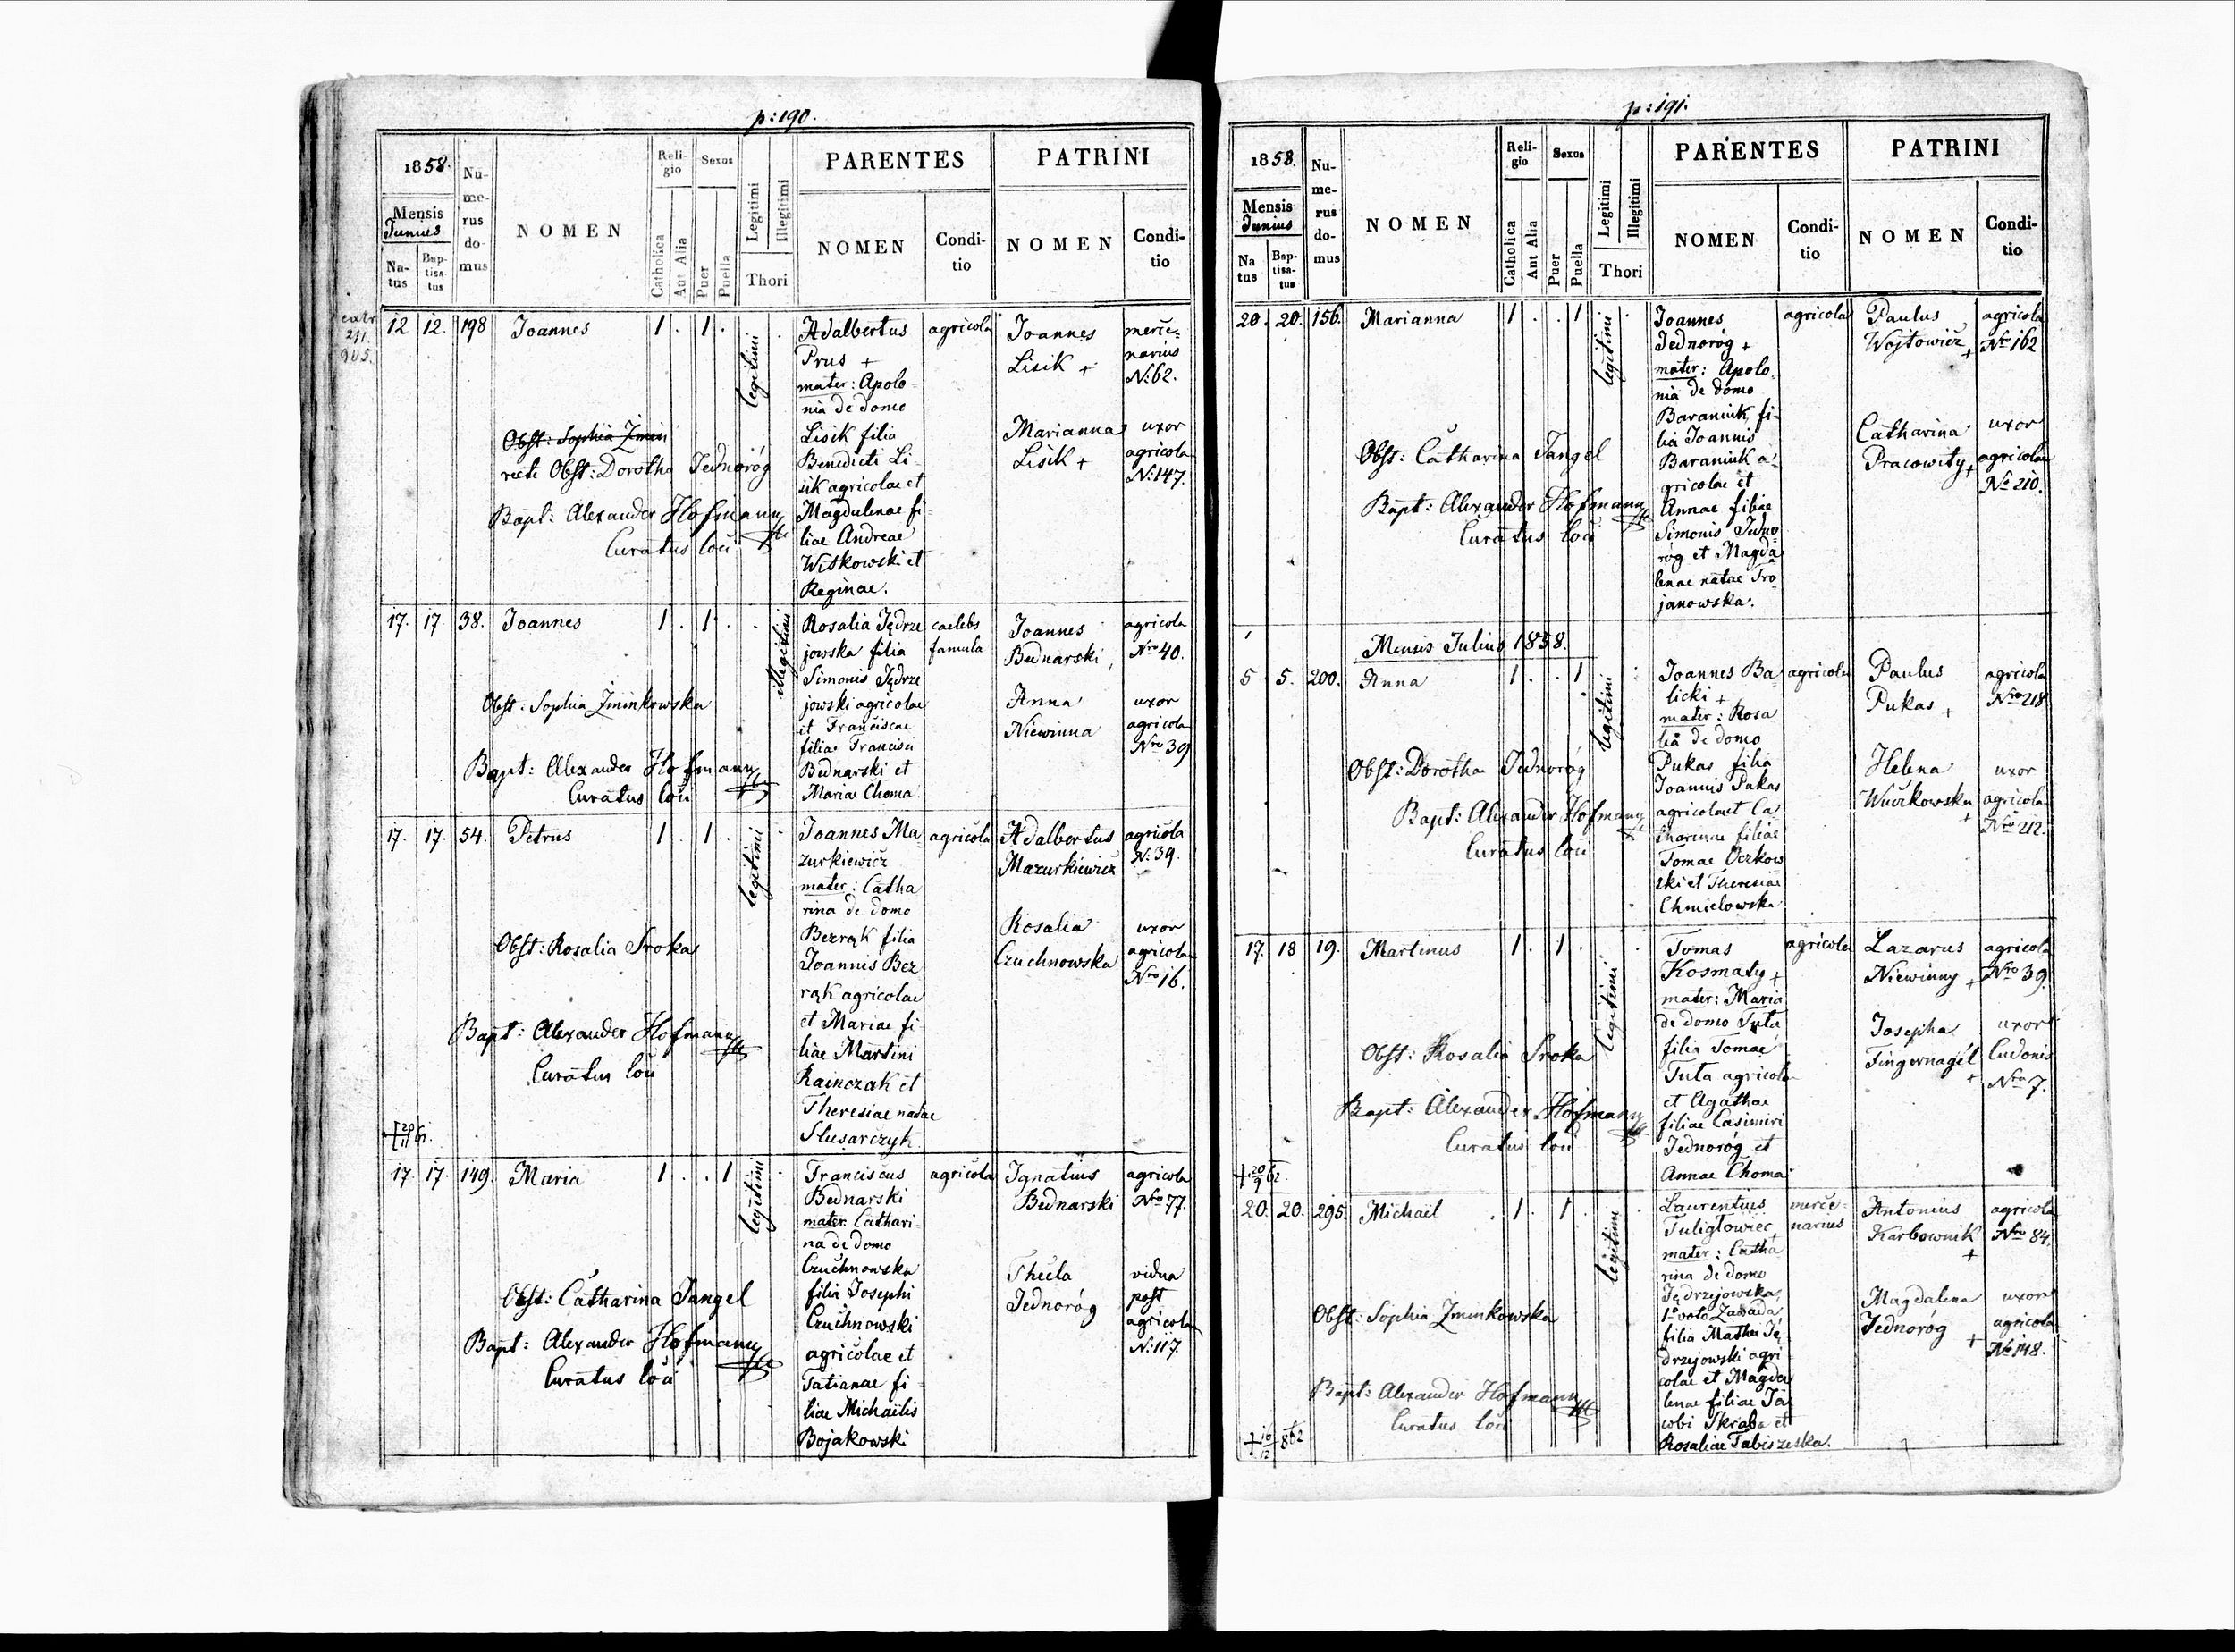 p: 190.
1858.
Mensis
Junius
Na-
tus
Bap-
tisa-
tus
Nu-
me-
rus
do-
mus
NOMEN
Reli-
gio
Catholica
Aut Alia
Sexus
Puer
Puella
Legitimi
Illegitimi
Thori
PARENTES
NOMEN
Condi-
tio
PATRINI
NOMEN
Condi-
tio
extr
12 12. 198 Joannes 1 . 1 .
legitimi
Obst: Sophia Zmin
recte Obst: Dorothea Jednoróg
Bapt: Alexander Hofmann
Curatus loci
Adalbertus
Prus +
mater: Apolo-
nia de domo
Lisik filia
Benedicti Li-
sik agricolae et
Magdalenae fi-
liae Andreae
Witkowski et
Reginae.
agricola
Joannes
Lisik +
merce-
narius
N: 62.
Marianna
Lisik +
uxor
agricola
N: 147.
17. 17. 38. Joannes 1 . 1 .
illegitimi
Obst: Sophia Zminkowska
Bapt: Alexander Hofmann
Curatus loci
Rosalia Jędrze
jowska filia
Simonis Jędrze
jowski agricolae
et Franciscae
filiae Francisci
Bednarski et
Mariae Choma.
caelebs
famula
Joannes
Bednarski,
agricola
Nro 40.
Anna
Niewinna
uxor
agricola
Nro 39
17. 17. 54. Petrus 1 . 1 .
legitimi
Obst: Rosalia Sroka
Bapt: Alexander Hofmann
Curatus loci
Joannes Ma-
zurkiewicz
mater: Catha
rina de domo
Bezrąk filia
Joannis Bez
rąk agricolae
et Mariae fi
liae Martini
Rainczak et
Theresiae natae
Slusarczyk
agricola
Adalbertus
Mazurkiewicz
agricola
N: 39.
Rosalia
Czuchnowska
uxor
agricola
Nro 16.
17. 17. 149. Maria 1 . . 1
legitimi
Obst: Catharina Jangel
Bapt: Alexander Hofmann
Curatus loci
Franciscus
Bednarski
mater Cathari-
na de domo
Czuchnowska
filia Josephi
Czuchnowski
agricolae et
Tatianae fi
liae Michaëlis
Bojakowski
agricola
Ignatius
Bednarski
agricola
Nro 77.
Thecla
Jednoróg
vidua
post
agricola
N: 117.
p: 191.
1858.
Mensis
Junius
Na
tus
Bap-
tisa-
tus
Nu-
me-
rus
do-
mus
NOMEN
Reli-
gio
Catholica
Aut Alia
Sexus
Puer
Puella
Legitimi
Illegitimi
Thori
PARENTES
NOMEN
Condi-
tio
PATRINI
NOMEN
Condi-
tio
20. 20. 156. Marianna 1 . . 1
legitimi
Obst: Catharina Jangel
Bapt: Alexander Hofmann
Curatus loci
Joannes
Jednoróg +
mater: Apolo-
nia de domo
Baraniuk, fi-
lia Joannis
Baraniuk a-
gricolae et
Annae filiae
Simonis Jedno-
róg et Magda
lenae natae Tro
janowska.
agricola
Paulus
Wojtowicz +
agricola
Nro 162
Catharina
Pracowity +
uxor
agricolae
No 210.
Mensis Julius 1858.
5 5. 200. Anna 1 . . 1
legitimi
Obst: Dorothea Jednoróg
Bapt: Alexander Hofmann
Curatus loci
Joannes Ba-
licki +
mater: Rosa
lia de domo
Pukas filia
Joannis Pukas
agricolae et Ca-
tharinae filiae
Tomae Oczkow
ski et Theresiae
Chmielowska
agricola
Paulus
Pukas +
agricola
Nro 218
Helena
Wuczkowska +
uxor
agricola
Nro 212.
17. 18 19. Martinus 1 . 1 .
legitimi
Obst: Rosalia Sroka
Bapt: Alexander Hofmann
Curatus loci
Tomas
Kosmaty +
mater: Maria
de domo Tuta
filia Tomae
Tuta agricolae
et Agathae
filiae Casimiri
Jednoróg et
Annae Choma
agricola
Lazarus
Niewinny +
agricola
Nro 39.
Josepha
Fingernagel +
uxor
ludonis
Nro 7.
20. 20. 295. Michaël . 1 . 1 .
legitimi
Obst: Sophia Zminkowska
Bapt: Alexander Hofmann
Curatus loci
Laurentius
Tuligłowiec
mater: Catha
rina de domo
Jędrzejowska,
1o voto Zawada
filia Mathei Ję
drzejowski agri
colae et Magda
lenae filiae Ja
cobi Skraba et
Rosaliae Tabiszeska.
merce-
narius
Antonius
Karbownik +
agricola
Nro 84.
Magdalena
Jednoróg +
uxor
agricola
No 148.